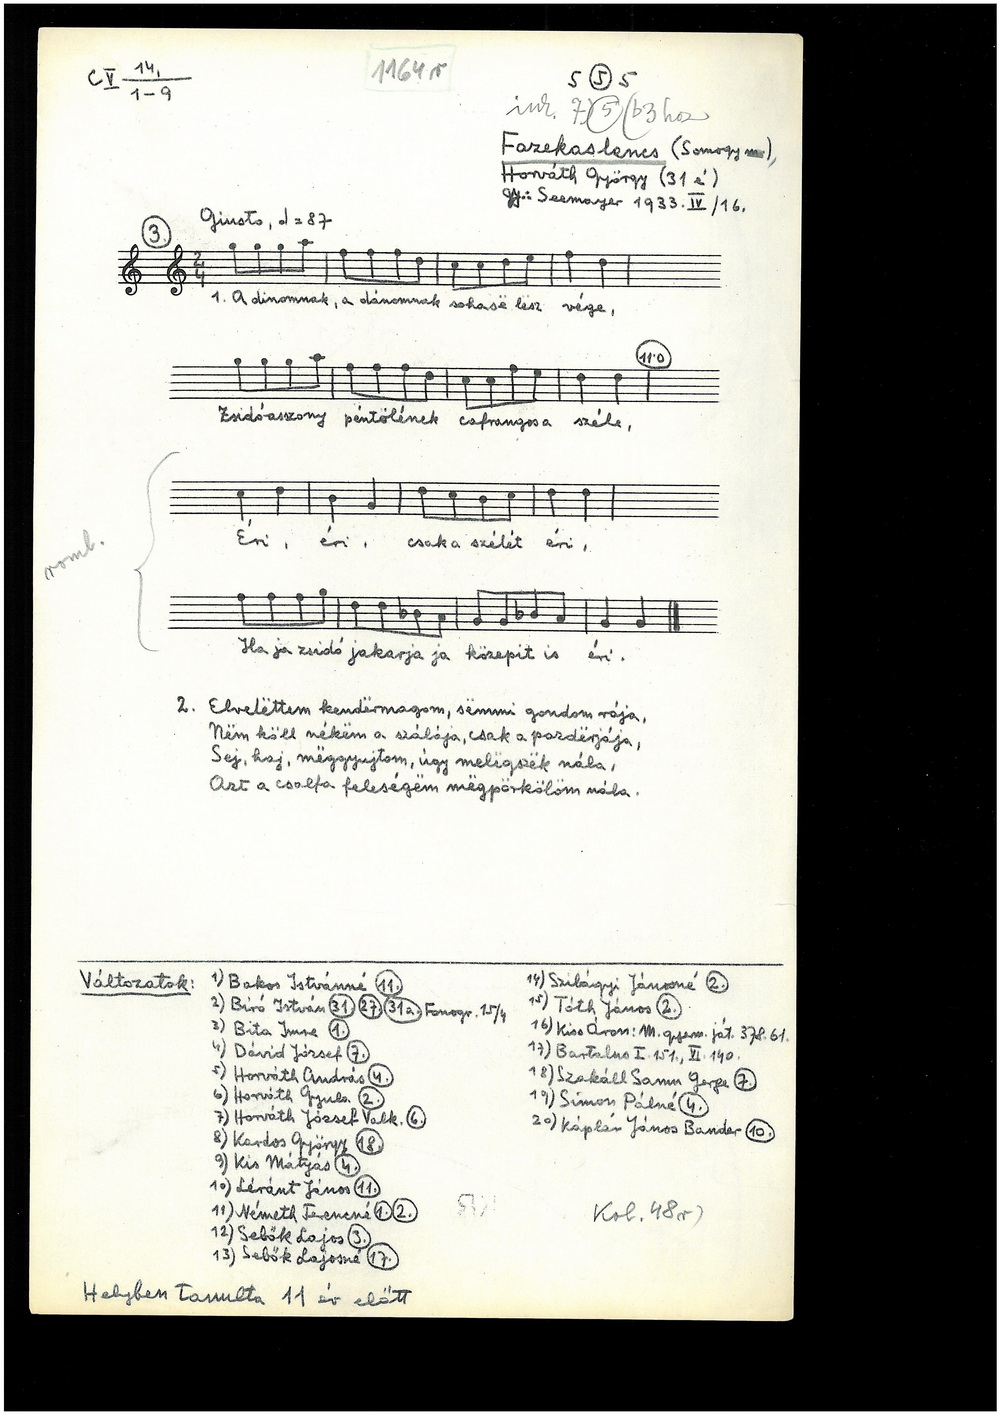 C V 14. / 1-9
1164
5 (5) 5
7) 5 (b3 hoz
Fazekaslencs (Somogy m),
Horváth György (31 é)
gy.: Seemayer 1933. IV/16.
Giusto, d = 87
3.
1. A dinomnak, a dánomnak sohasë lësz vége,
11.0
Zsidóasszony péntölének cafrangosa széle,
Éri, éri, csak a szélét éri,
romb.
Ha ja zsidó jakarja ja közepit is éri.
2. Elvetëttem kendërmagom, sëmmi gondom rája,
Nëm köll nékëm a szálája, csak a pazdërjája,
Sej, haj, mëggyujtom, úgy melegszëk nála,
Azt a csalfa feleségëm mëgpörkölöm nála.
Változatok:
1) Bakos Istvánné 11.
2) Biró István 31 27. 31a. Fonogr. 15/4
3) Bita Imre 1.
4) Dávid József 7.
5) Horváth András 4.
6) Horváth Gyula 2.
7) Horváth József Valk. 6.
8) Kardos György 18.
9) Kis Mátyás 4.
10) Léránt János 11.
11) Németh Ferencné 1. 2.
12) Sebők Lajos 3.
13) Sebők Lajosné 17.
14) Szilágyi Jánosné 2.
15) Tóth János 2.
16) Kiss Áron: M. gyerm. ját. 378. 61.
17) Bartalus I. 151., VI. 140.
18) Szakáll Samu Gerge 7.
19) Simon Pálné 4.
20) Káplár János Bander 10.
Kol. 48r)
Helyben tanulta 11 év előtt